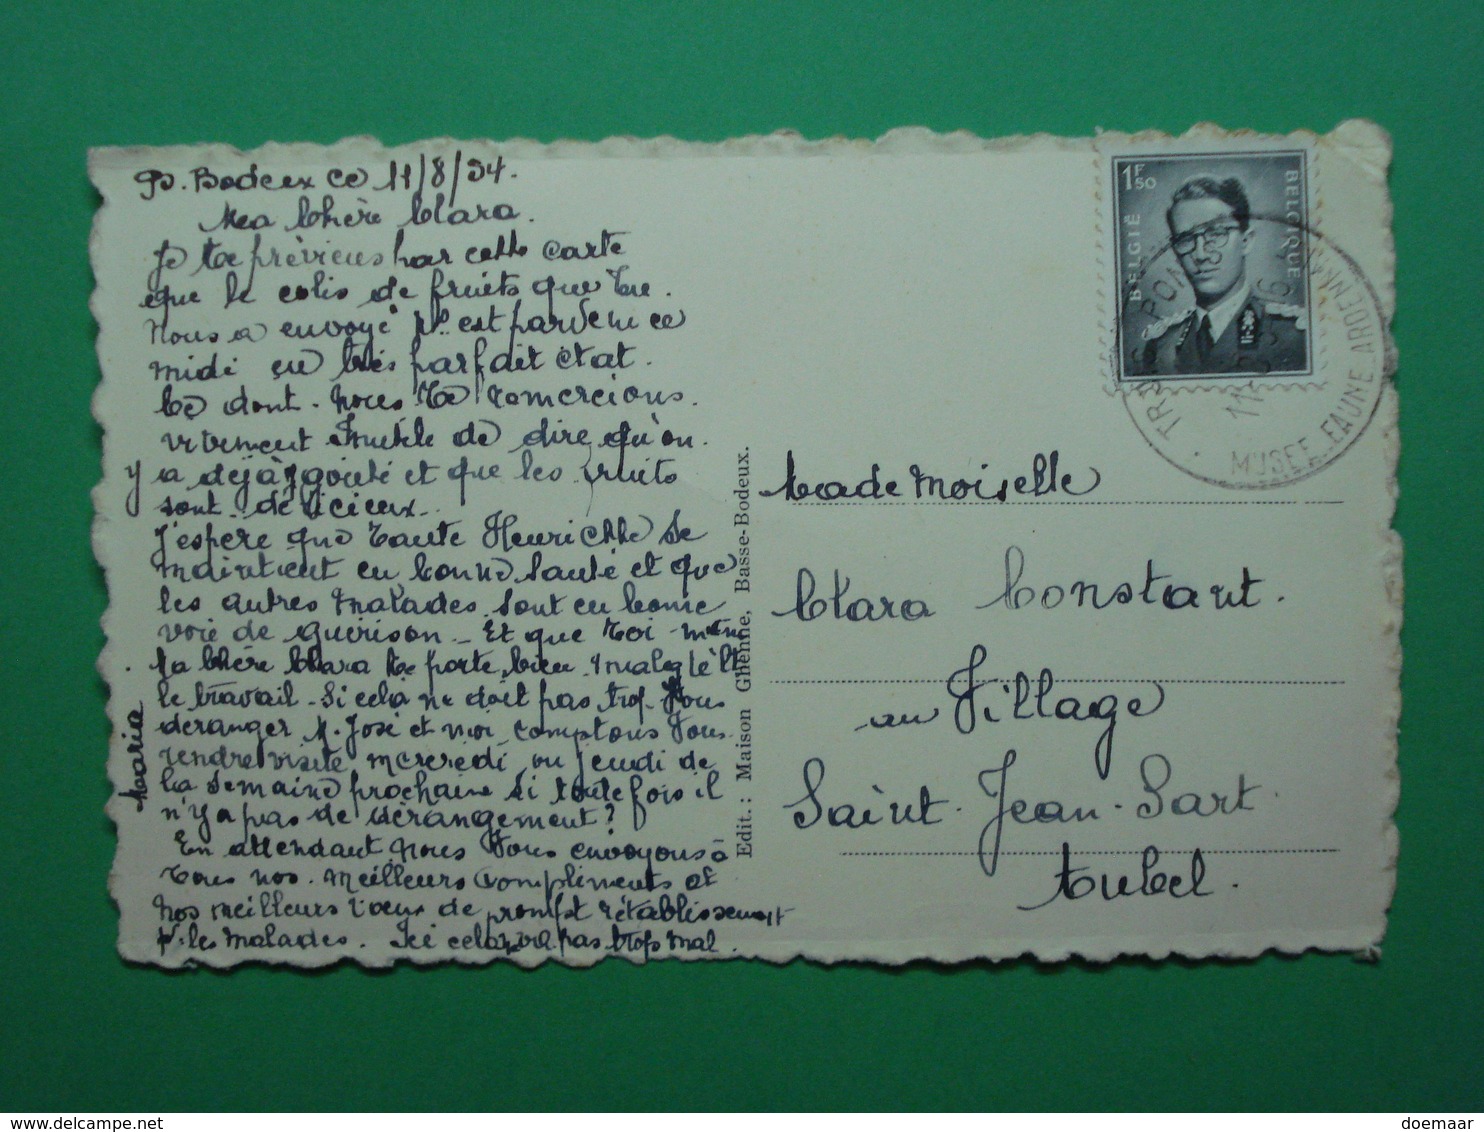 B. Bodeux ce 11/8/54.
Ma Chère Clara.
Je te préviens par cette carte
que le colis de fruits que tu
nous a envoyé est parvenu ce
midi en très parfait état.
Ce dont nous te remercions
vivement Inutile de dire qu'on
y a déjà goûté et que les fruits
sont délicieux.
J'espère que Tante Henriette se
maintient en bonne santé et que
les autres malades sont en bonne
voie de guérison - Et que toi-même
la Chère Clara te porte bien malgré
le travail - Si cela ne doit pas trop vous
déranger M. José et moi comptons vous
rendre visite mercredi ou jeudi de
la semaine prochaine si toutefois il
n'y a pas de dérangement?
En attendant nous vous envoyons à
tous nos meilleurs compliments et
nos meilleurs vœux de prompt rétablissement
pr les malades. Ici cela va pas trop mal.
Maria
Edit.: Maison Ghenne, Basse-Bodeux.
1F50
BELGIË
BELGIQUE
MUSEE FAUNE ARDENN
Mademoiselle
Clara Constant.
au Village
Saint-Jean-Sart
Aubel.
doemaar